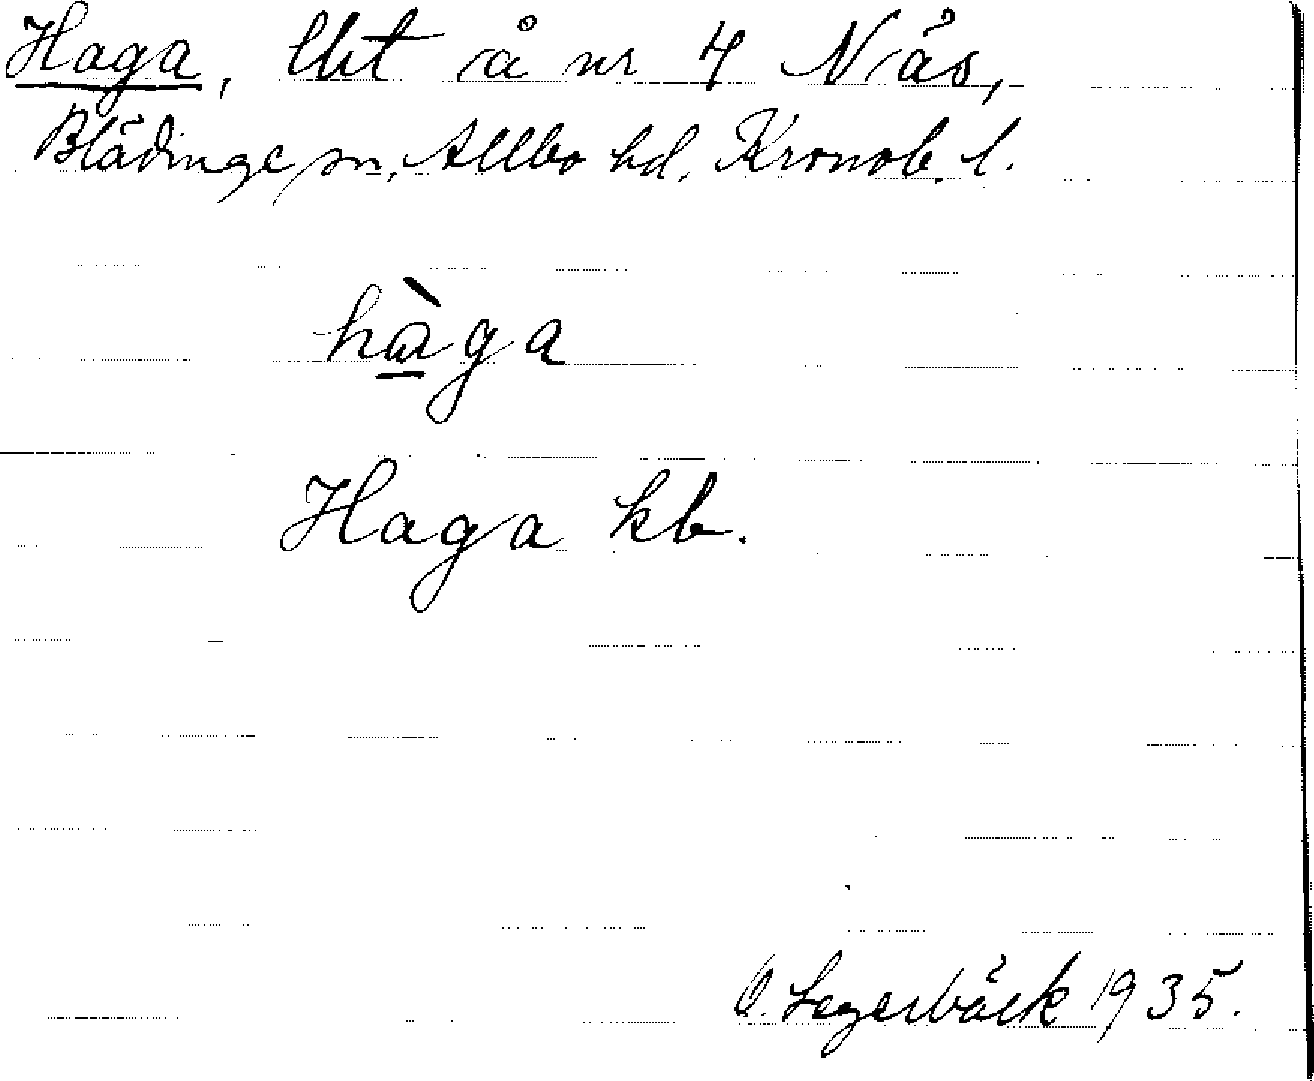 Haga, lht å nr 4 Näs,
Blädinge sn, Allbo hd, Kronob. l.
hàga
Haga kb.
O. Lagerbäck 1935.